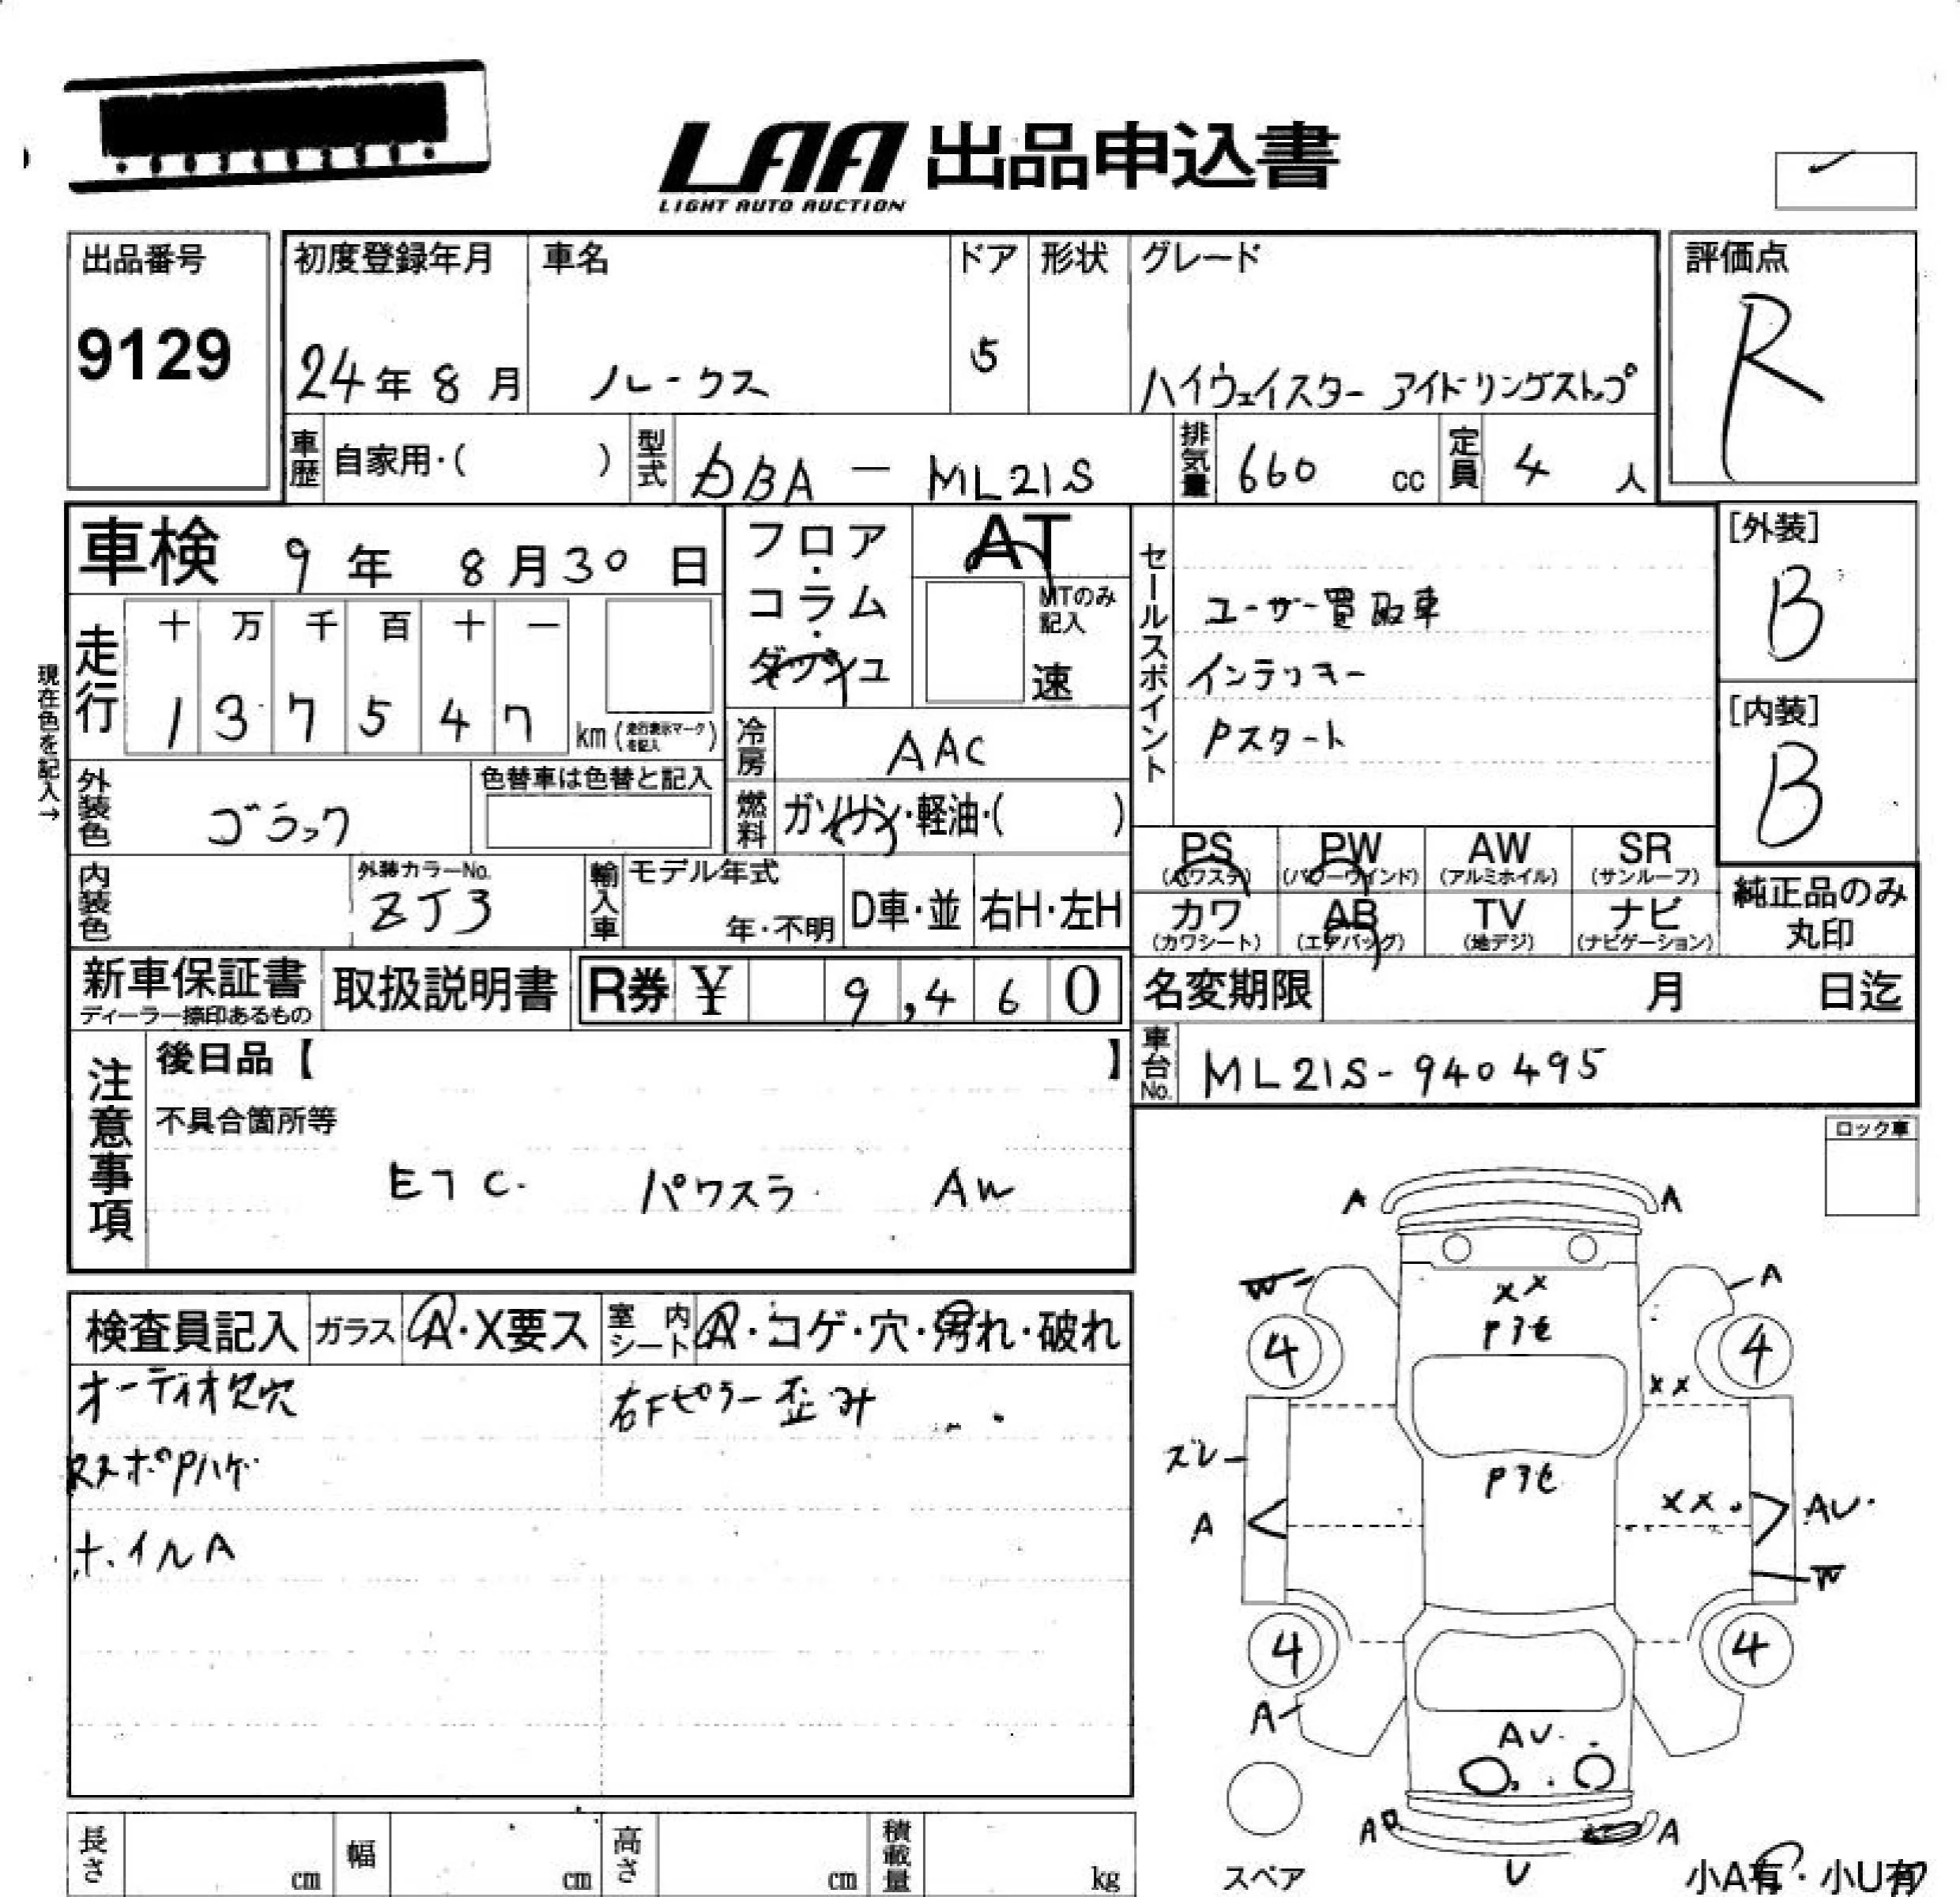 LAA 出品申込書
LIGHT AUTO AUCTION
出品番号
9129
初度登録年月
24年 8月
車名
ルークス
ドア
5
形状
グレード
ハイウェイスター アイドリングストップ
評価点
R
車歴
自家用・( )
型式
DBA - ML21S
排気量
660 cc
定員
4 人
車検 9年 8月30日
走行
十 万 千 百 十 一
1 3 7 5 4 7
km (走行表示マークを記入)
現在色を記入→
フロア・コラム・ダッシュ
AT
MTのみ記入
速
セールスポイント
ユーザー買取車
インテリキー
Pスタート
[外装]
B
[内装]
B
冷房
AAC
外装色
ブラック
色替車は色替と記入
燃料
ガソリン・軽油・( )
PS
(パワステ)
PW
(パワーウインド)
AW
(アルミホイル)
SR
(サンルーフ)
カワ
(カワシート)
AB
(エアバッグ)
TV
(地デジ)
ナビ
(ナビゲーション)
純正品のみ
丸印
内装色
外装カラーNo.
ZJ3
輸入車
モデル年式
年・不明
D車・並
右H・左H
新車保証書
ディーラー捺印あるもの
取扱説明書
R券 ¥ 9,460
名変期限 月 日迄
車台No.
ML21S-940495
注意事項
後日品【 】
不具合箇所等
ETC. パワスラ AW
ロック車
検査員記入
ガラス
A・X要ス
室内シート
A・コゲ・穴・汚れ・破れ
オーディオ欠穴
右Fピラー歪み
RスポPハゲ
ホイルA
A A
W A
XX
Pアセ
4 4
XX
ズレ
Pアセ
XX
A AU
W
4 4
A
AU
A A
U
スペア
小A有・小U有
長さ cm
幅 cm
高さ cm
積載量 kg